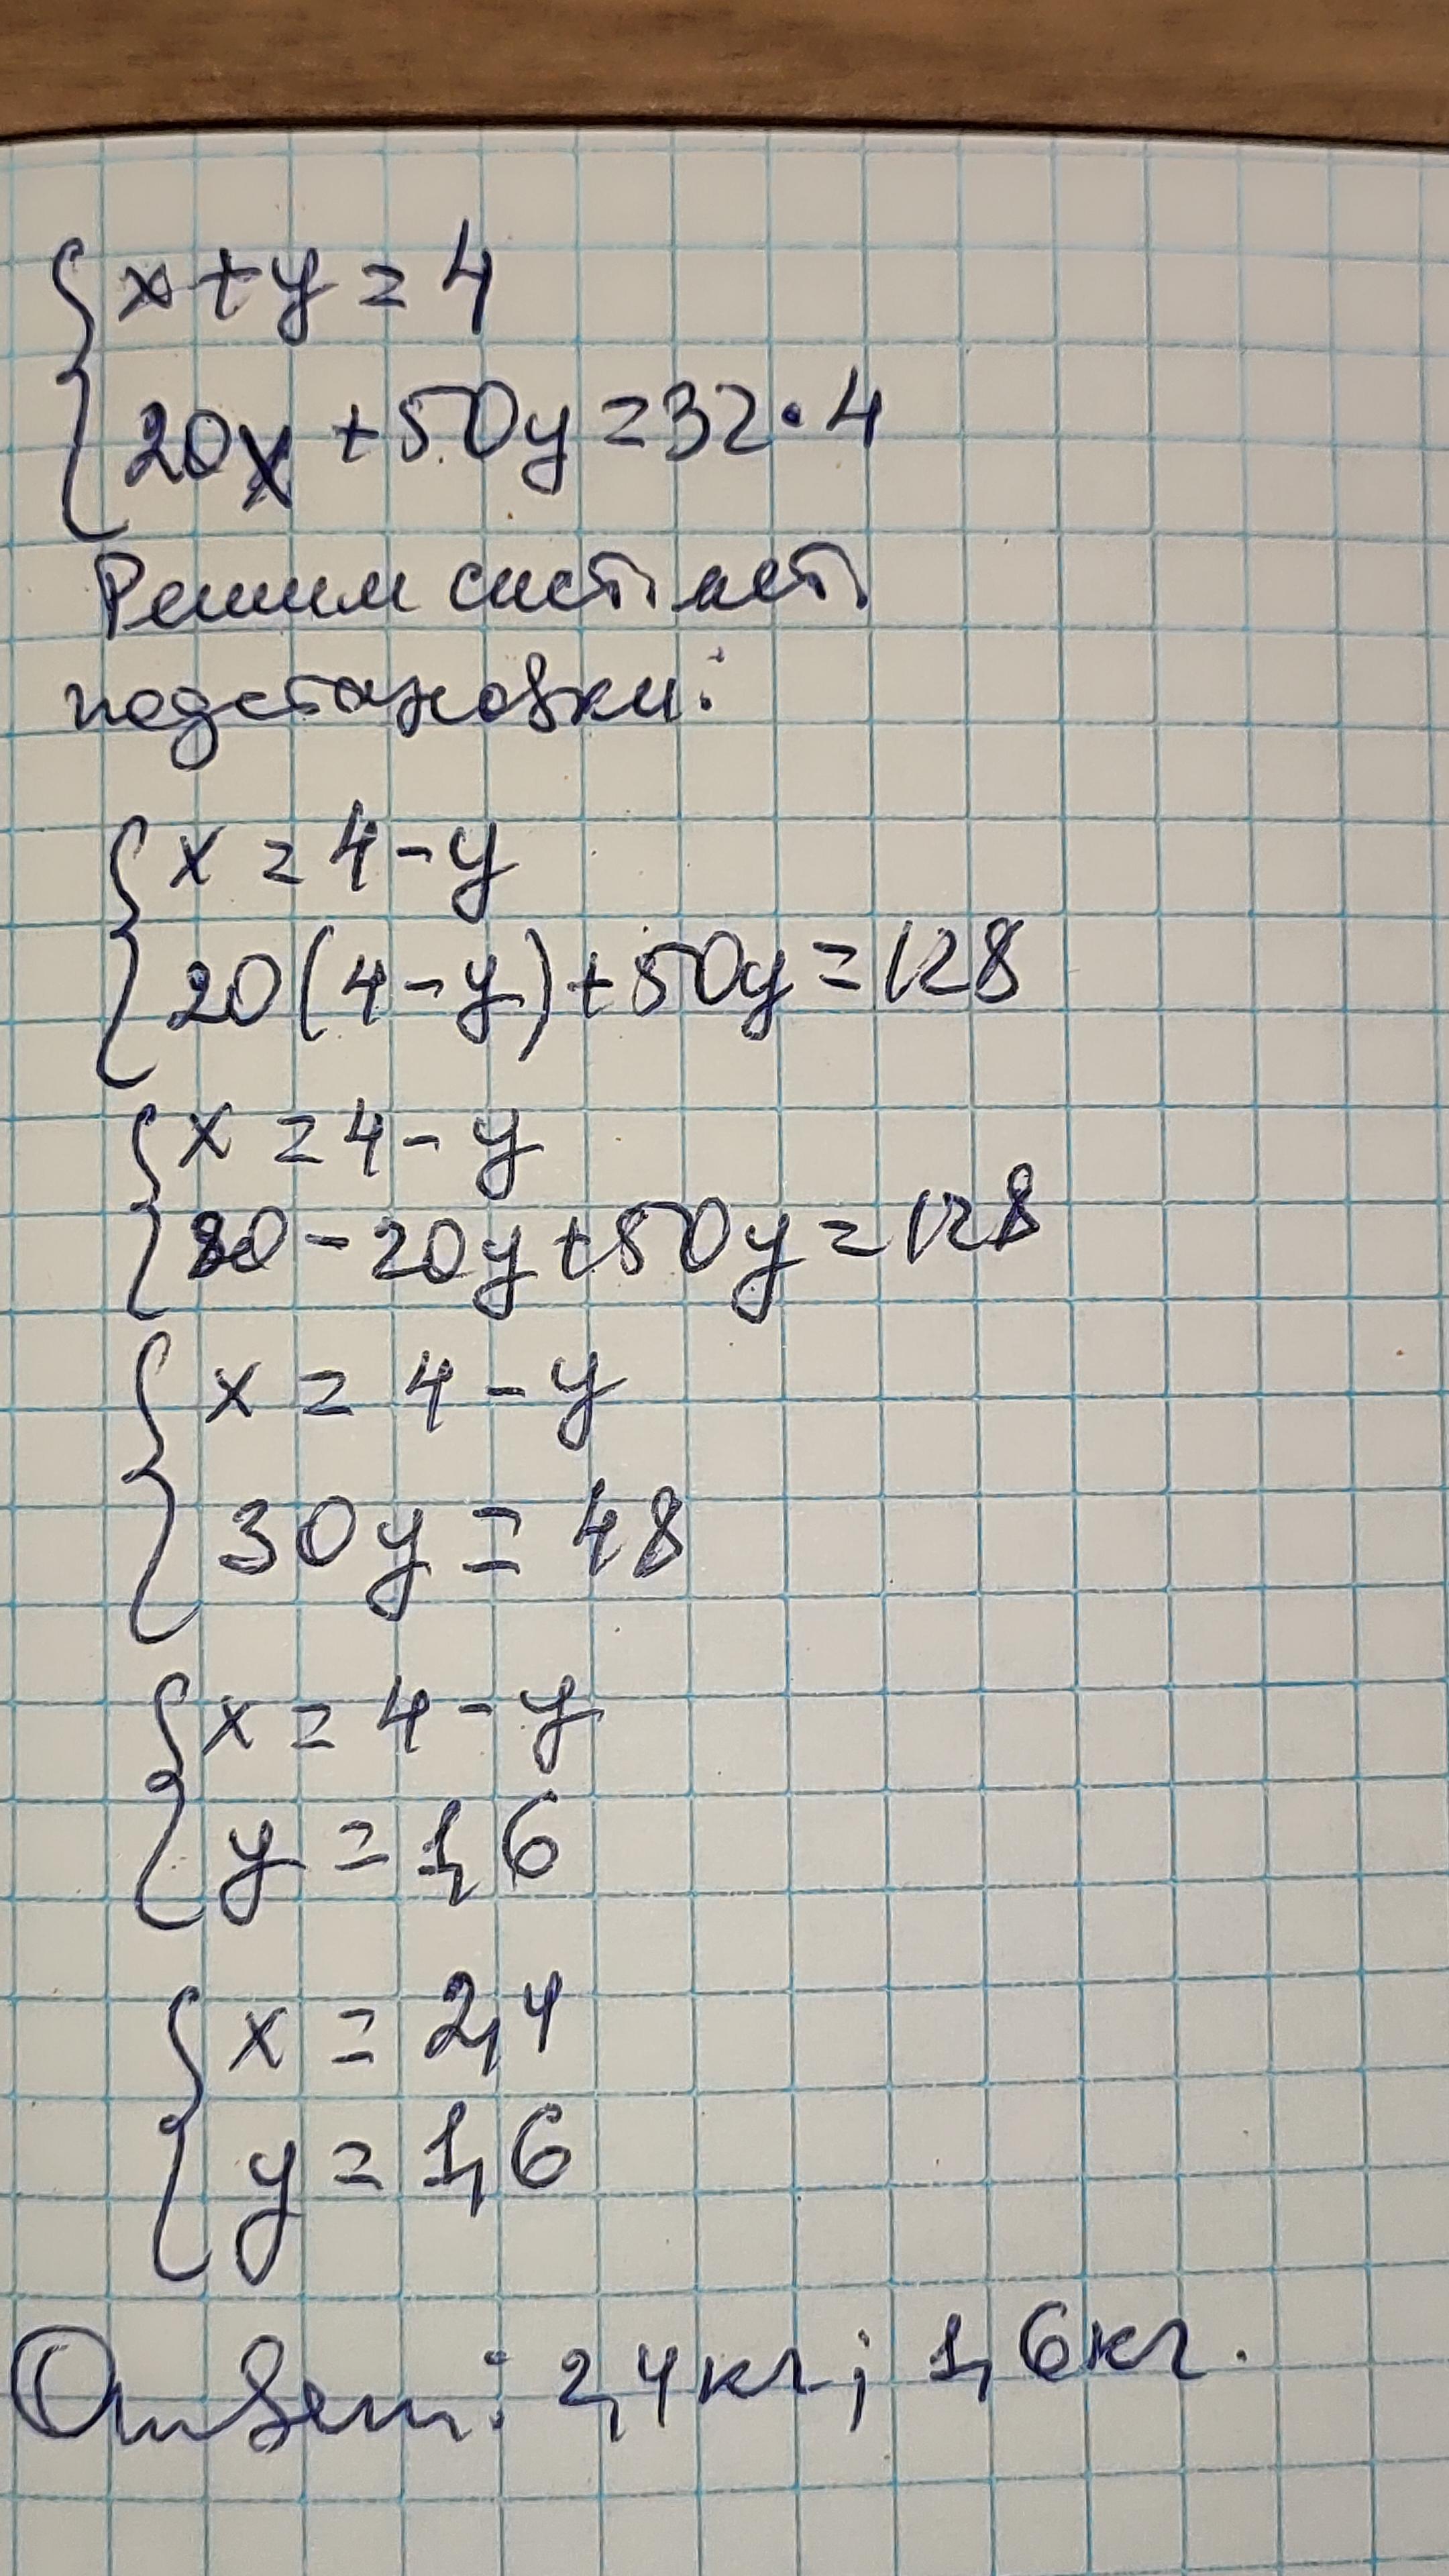 x + y = 4
20x + 50y = 32 · 4
Решим сист. мет.
подстановки:
x = 4 - y
20(4 - y) + 50y = 128
x = 4 - y
80 - 20y + 50y = 128
x = 4 - y
30y = 48
x = 4 - y
y = 1,6
x = 2,4
y = 1,6
Ответ: 2,4 кг; 1,6 кг.